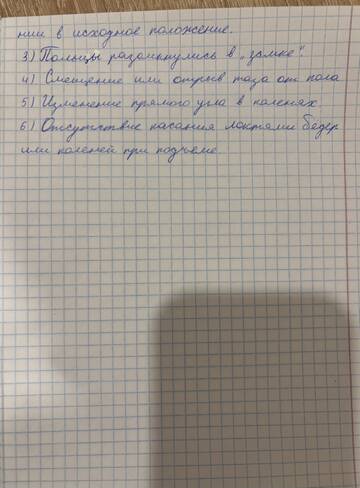 нии в исходное положение.
3) Пальцы разомкнулись в "замке".
4) Смещение или отрыв таза от пола
5) Изменение прямого угла в коленях.
6) Отсутствие касания локтями бедер
или коленей при подъеме